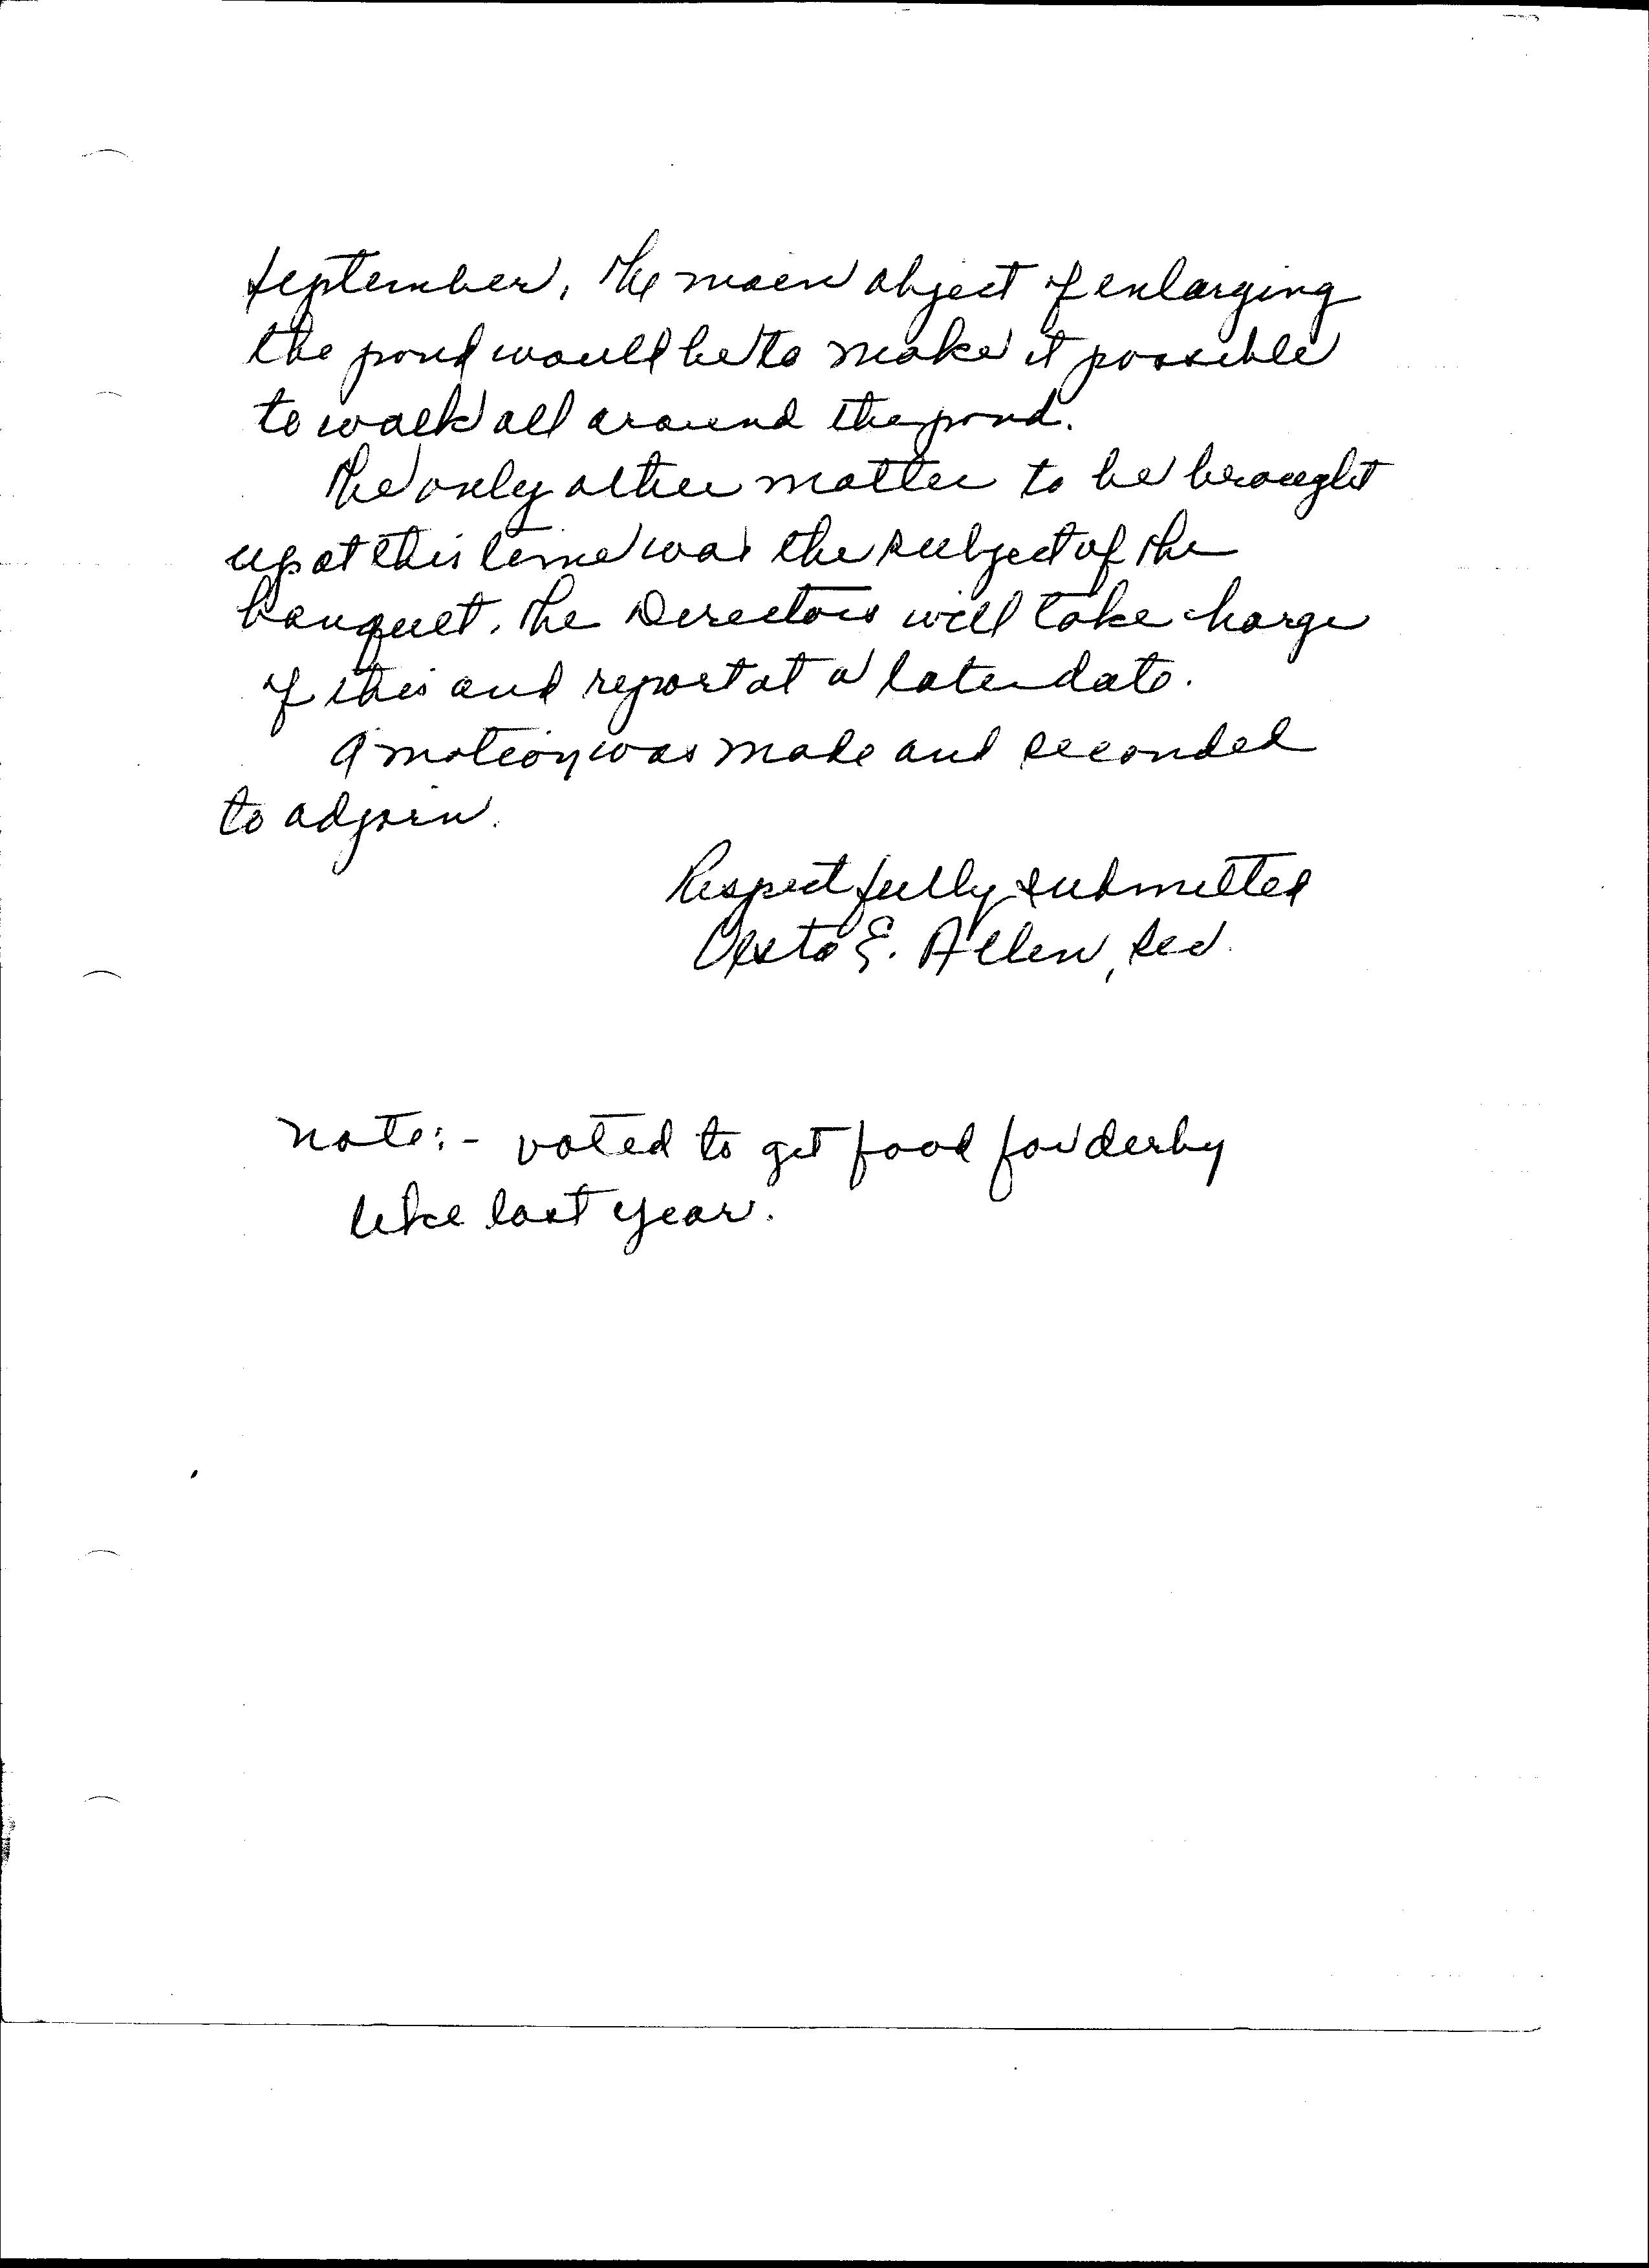 September. The main object of enlarging
the pond would be to make it possible
to walk all around the pond.
The only other matter to be brought
up at this time was the subject of the
banquet. The Directors will take charge
of this and report at a later date.
A motion was made and seconded
to adjorn.
Respectfully submitted
E. Allen, Sec.
Note:- voted to get food for derby
like last year.